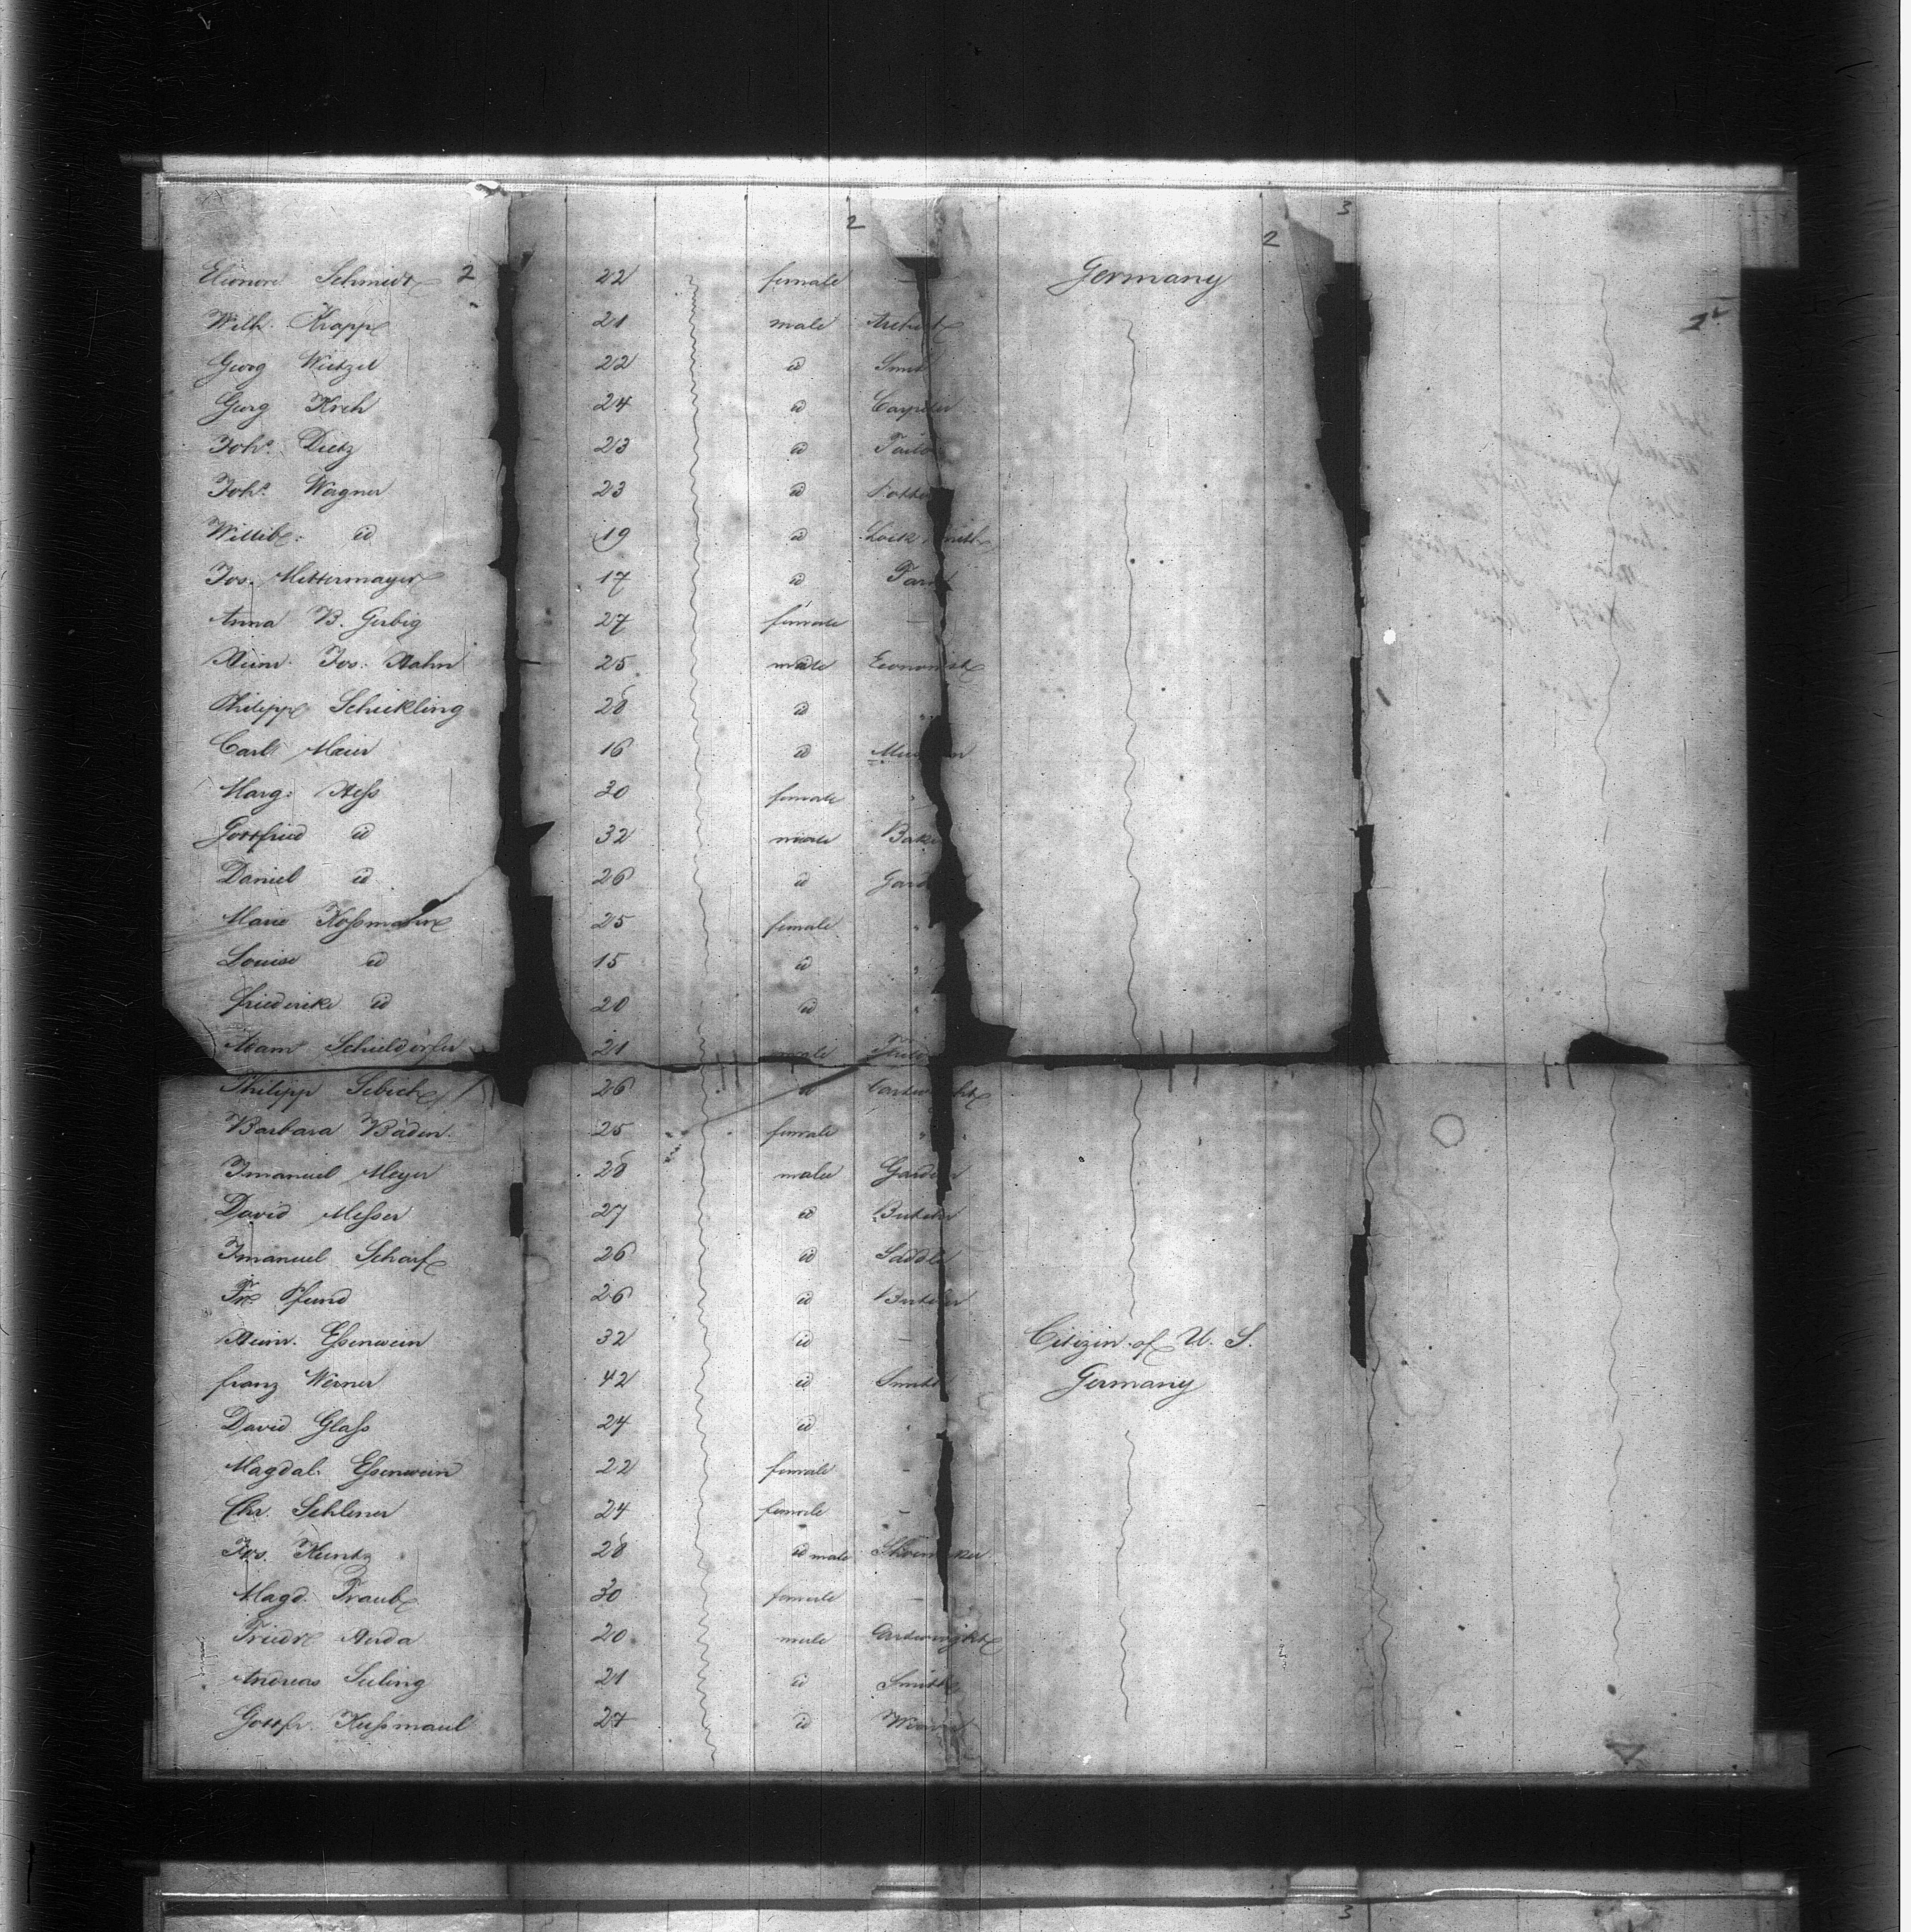 2 2 3
Eleonore Schmidt 2 22 female — Germany
Wilh. Krapp 21 male
Georg Wietzel 22 id Smit
Georg Kreh 24 id Carpeter
Johs. Dietz 23 id Tailo
Johs. Wagner 23 id
id 19 id Lock smith
Jos. Mettermayer 17 id Farm
Anna B. Gerbig 27 female —
Heinr. Jos. Hahn 25 male Economist
Philipp Schickling 28 id "
Carl Maier 16 id
Marg. Hess 30 female "
Gottfried id 32 male Bake
Daniel id 26 id Gard
Marie Kossmann 25 female "
Louise id 15 id "
Friederike id 20 id "
Adam Schieldorfer 21 male Tailo
Philipp 26 id Cartwright
Barbara Baden 25 female "
Imanuel Meyer 28 male Garden
David Messer 27 id Butcher
Imanuel Scharf 26 id Saddle
Fr. Pfund 26 id Butcher
Heinr. Essenwein 32 id — Citizin of U. S.
Franz Werner 42 id Smith Germany
David Glass 24 id "
Magdal. Essenwein 22 female —
Chr. Schlener 24 female —
Jos. Kuntz 28 id male Shoemaker
Magd. Traub 30 female —
Friedr. 20 male Cartwright
Andreas Seeling 21 id Smith
Gottfr. Kussmaul 27 id
3